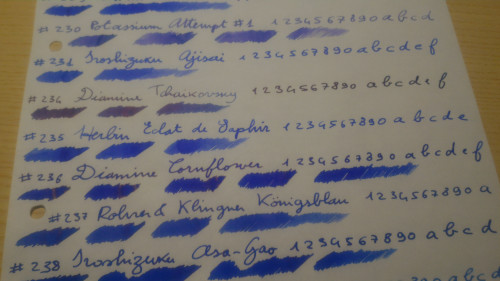 #230 Potassium Attempt #1 1234567890 a b c d
#231 Iroshizuku Ajisai 1234567890 a b c d e f
#234 Diamine Tchaikovsky 1234567890 a b c d e f
#235 Herbin Eclat de Saphir 1234567890 a b c d e
#236 Diamine Cornflower 1234567890 a b c d e f
#237 Rohrer & Klingner Königsblau 1234567890 a
#238 Iroshizuku Asa-Gao 1234567890 a b c d